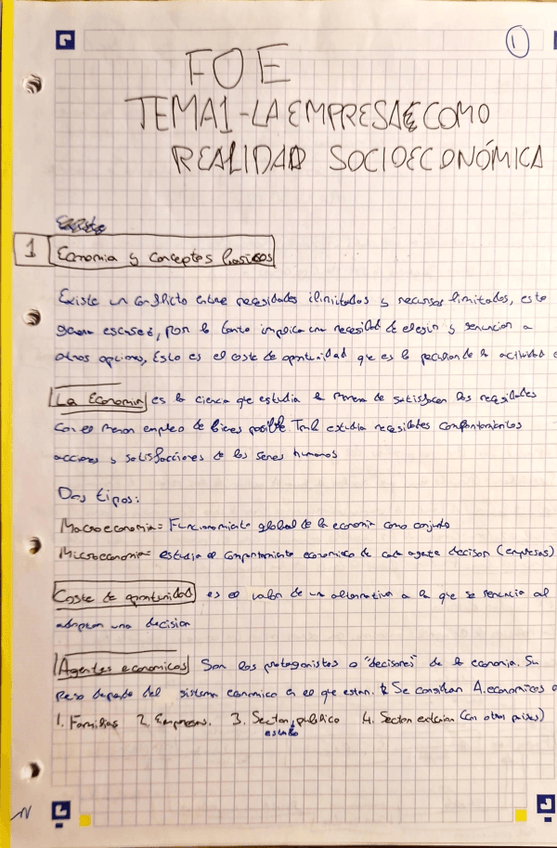 1
FOE
TEMA1-LA EMPRESA COMO
REALIDAD SOCIOECONÓMICA
1 Economia y conceptos basicos
Existe un conflicto entre necesidades ilimitadas y recursos limitados, esto
genera escasez, por lo tanto implica una necesidad de elegir y renunciar a
otras opciones, Esto es el coste de oportunidad que es lo peculiar de la actividad
La Economia es la ciencia que estudia la manera de satisfacer las necesidades
con el menor empleo de bienes posible Tmb estudia necesidades comportamientos
acciones y satisfacciones de los seres humanos
Dos tipos:
Macroeconomia= Funcionamiento global de la economia como conjunto
Microeconomia= estudia el comportamiento economico de cada agente decisor (empresas)
Coste de oportunidad es el valor de una alternativa a la que se renuncia al
adoptar una decision
Agentes economicos Son los protagonistas o "decisores" de la economia. Su
peso depende del sistema economico en el que estan. Se consideran A.economicos a
1. Familias 2. Empresas. 3. Sector publico 4. Sector exterior (con otros paises)
estado